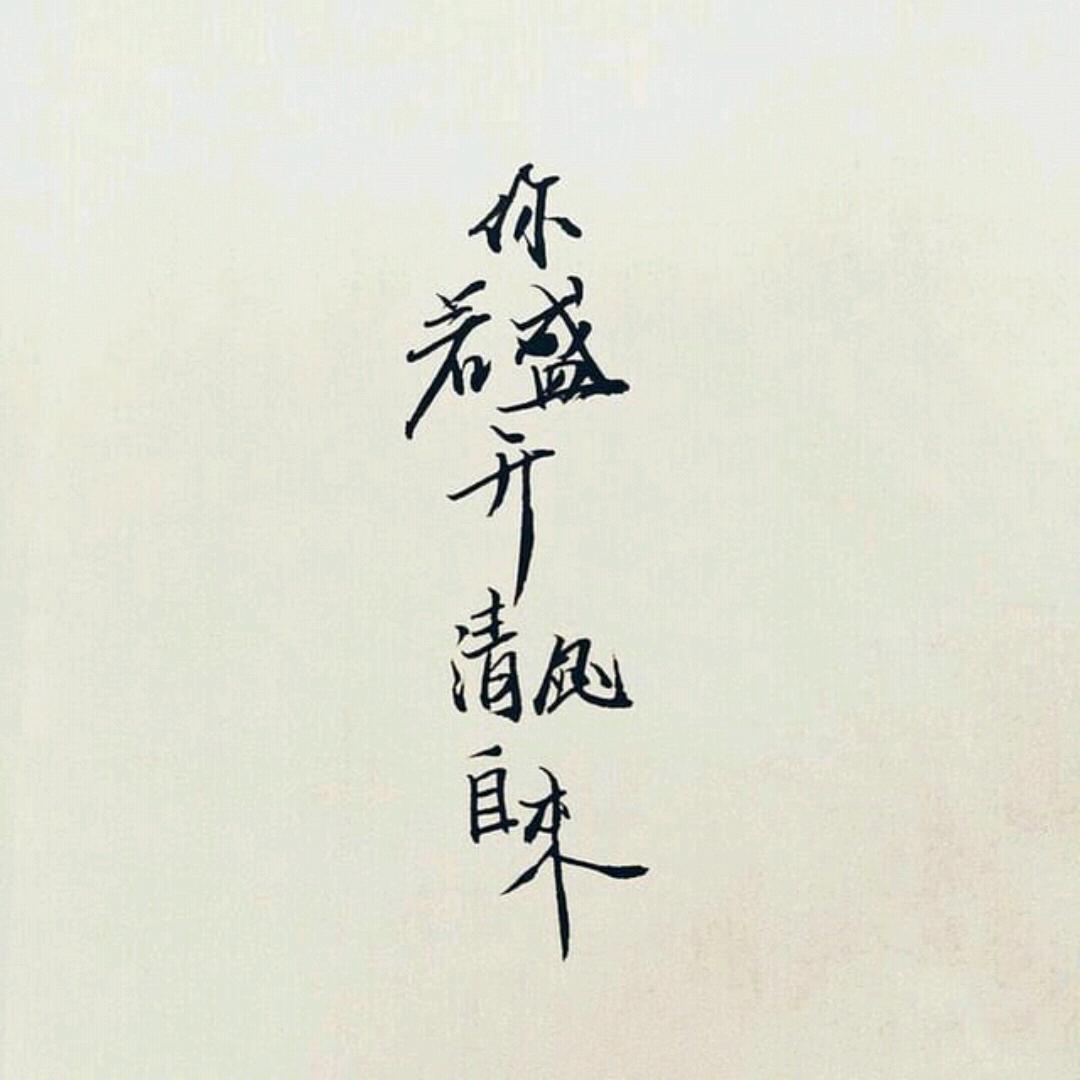 你若盛开清风自来